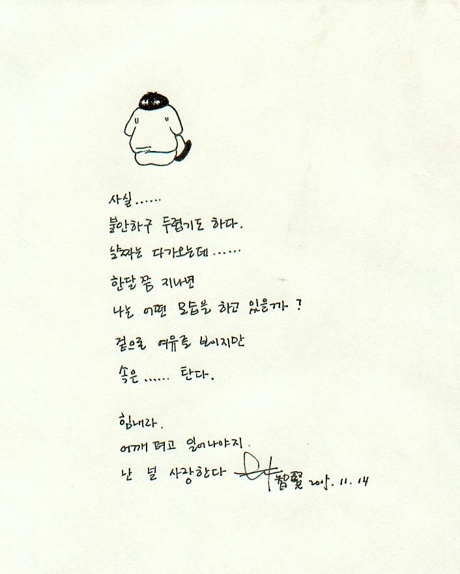 사실......
불안하구 두렵기도 하다.
날짜는 다가오는데......
한달쯤 지나면
나는 어떤 모습을 하고 있을까?
겉으로 여유로 보이지만
속은...... 탄다.
힘내라.
어깨 펴고 일어나야지.
난 널 사랑한다 2005. 11. 14